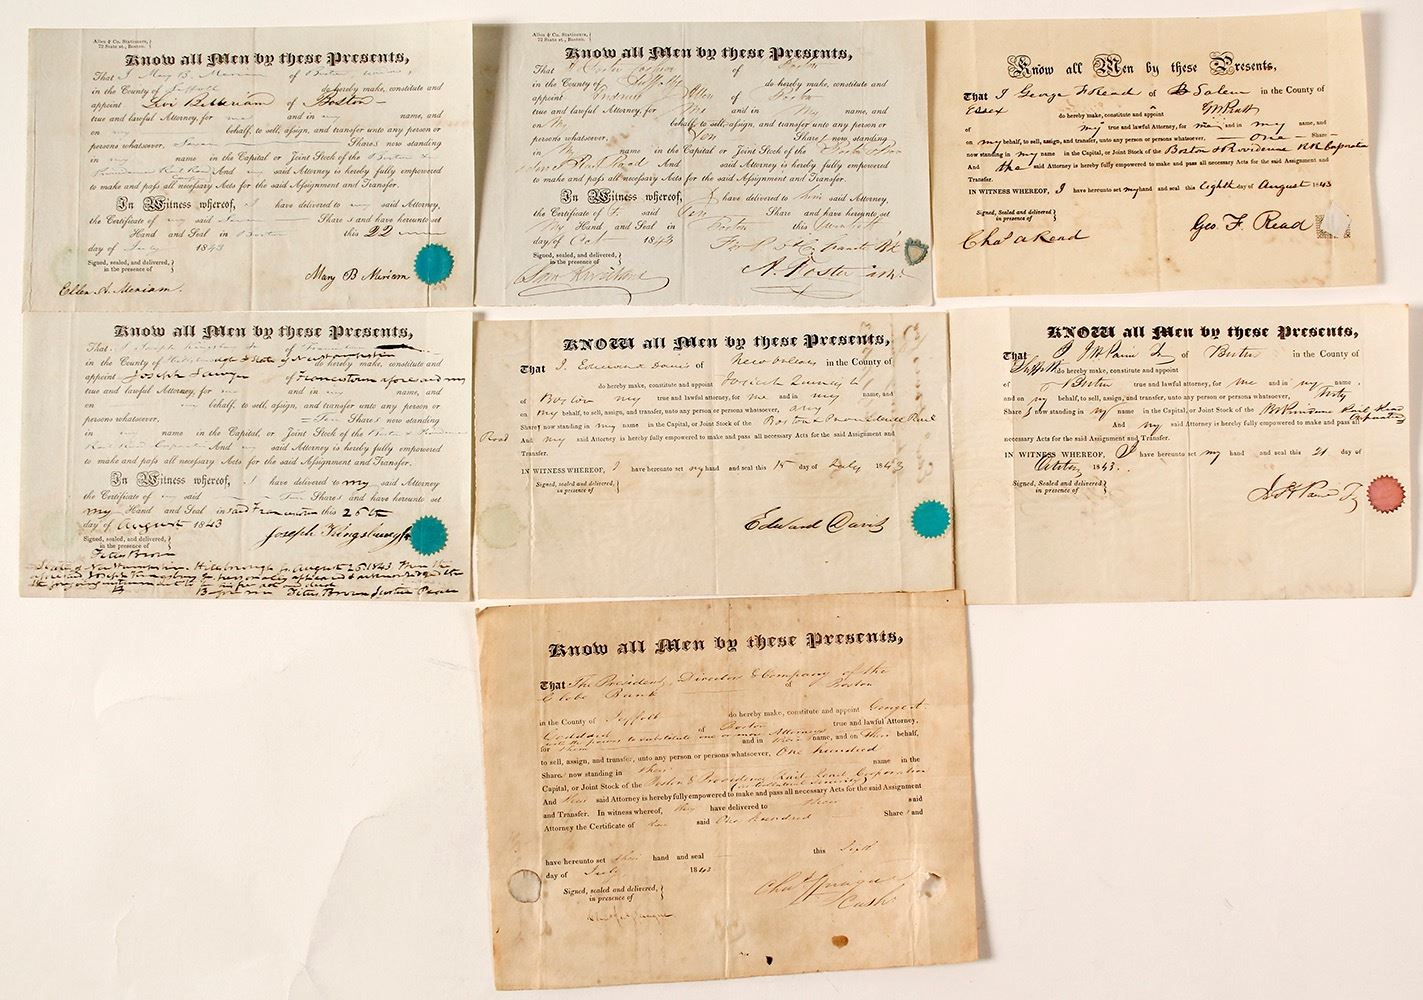 Allen & Co. Stationers,
72 State st., Boston.
Know all Men by these Presents,
That I Mary B. Meriam of Boston
in the County of Suffolk do hereby make, constitute and
appoint Levi B. Meriam of Boston
true and lawful Attorney, for me and in my name, and
on my behalf, to sell, assign, and transfer unto any person or
persons whatsoever, Seven Shares now standing
in my name in the Capital or Joint Stock of the Boston &
Providence Rail Road And my said Attorney is hereby fully empowered
to make and pass all necessary Acts for the said Assignment and Transfer.
In Witness whereof, I have delivered to my said Attorney,
the Certificate of my said Seven Shares and have hereunto set
my Hand and Seal in Boston this 22
day of July 1843
Signed, sealed, and delivered,
in the presence of
Mary B Meriam
Ellen A. Meriam.
Allen & Co. Stationers,
72 State st., Boston.
Know all Men by these Presents,
That of Boston
in the County of Suffolk do hereby make, constitute and
appoint Allen of Boston
true and lawful Attorney, for My and in My name, and
on My behalf, to sell, assign, and transfer unto any person or
persons whatsoever, Ten Shares now standing
in My name in the Capital or Joint Stock of the
Rail Road And my said Attorney is hereby fully empowered
to make and pass all necessary Acts for the said Assignment and Transfer.
In Witness whereof, I have delivered to him said Attorney,
the Certificate of said Ten Share and have hereunto set
My Hand and Seal in Boston this
day of Oct 1843
Signed, sealed, and delivered,
in the presence of
A. Foster
Know all Men by these Presents,
That I George F Read of Salem in the County of
Essex do hereby make, constitute and appoint
my true and lawful Attorney, for me and in my name, and
on my behalf, to sell, assign, and transfer, unto any person or persons whatsoever, one Share
now standing in my name in the Capital, or Joint Stock of the Boston & Providence R R Corporation
And the said Attorney is hereby fully empowered to make and pass all necessary Acts for the said Assignment and
Transfer.
IN WITNESS WHEREOF, I have hereunto set my hand and seal this Eighth day of August 1843
Signed, Sealed and delivered
in presence of
Geo. F. Read
Chas A Read
Know all Men by these Presents,
That I Joseph Kingsbury Jr of Francestown
in the County of Hillsborough & State of New Hampshire do hereby make, constitute and
appoint Joseph Sawyer of Francestown aforesaid my
true and lawful Attorney, for me and in my name, and
on my behalf, to sell, assign, and transfer unto any person or
persons whatsoever, Ten Shares now standing
in my name in the Capital, or Joint Stock of the Boston & Providence
Rail Road Corporation And my said Attorney is hereby fully empowered
to make and pass all necessary Acts for the said Assignment and Transfer.
In Witness whereof, I have delivered to my said Attorney
the Certificate of my said Ten Shares and have hereunto set
my Hand and Seal in said Francestown this 25th
day of August 1843
Signed, sealed, and delivered,
in the presence of
Joseph Kingsbury Jr
Titus Brown
State of New Hampshire. Hillsborough ss. August 25, 1843 Then the
aforesaid Joseph Kingsbury Jr personally appeared & acknowledged the
foregoing instrument to be his free act and deed
Before me Titus Brown Justice Peace
KNOW all Men by these Presents,
That I, Edward Davis of New Orleans in the County of
do hereby make, constitute and appoint Josiah Quincy Jr
of Boston my true and lawful Attorney, for me and in my name, and
on my behalf, to sell, assign, and transfer, unto any person or persons whatsoever, any
Share now standing in my name in the Capital, or Joint Stock of the Boston & Providence Rail
Road And my said Attorney is hereby fully empowered to make and pass all necessary Acts for the said Assignment and
Transfer.
IN WITNESS WHEREOF, I have hereunto set my hand and seal this 15 day of July 1843
Signed, Sealed and delivered
in presence of
Edward Davis
KNOW all Men by these Presents,
That I J W Paine Jr of Boston in the County
of Suffolk do hereby make, constitute and appoint
of Boston true and lawful attorney, for me and in my name,
and on my behalf, to sell, assign, and transfer, unto any person or persons whatsoever, Thirty
Share now standing in my name in the Capital, or Joint Stock of the B & Providence Rail Road Corporation
And my said Attorney is hereby fully empowered to make and pass all
necessary Acts for the said Assignment and Transfer.
IN WITNESS WHEREOF, I have hereunto set my hand and seal this 21 day of
October 1843.
Signed, Sealed and delivered
in presence of
J W Paine Jr
Know all Men by these Presents,
That The President, Directors & Company of the
Globe Bank of Boston
in the County of Suffolk do hereby make, constitute and appoint George A.
Goddard of Boston true and lawful Attorney,
with the power to substitute one or more Attorneys
for them and in their name, and on their behalf,
to sell, assign, and transfer, unto any person or persons whatsoever, One hundred
Share now standing in their name in the
Capital, or Joint Stock of the Boston & Providence Rail Road Corporation
(as Collateral Security)
And their said Attorney is hereby fully empowered to make and pass all necessary Acts for the said Assignment
and Transfer. In witness whereof, they have delivered to their said
Attorney the Certificate of the said One hundred Share and
have hereunto set their hand and seal this Sixth
day of July 1843
Signed, sealed and delivered,
in presence of
Chas Sprague
Cashr